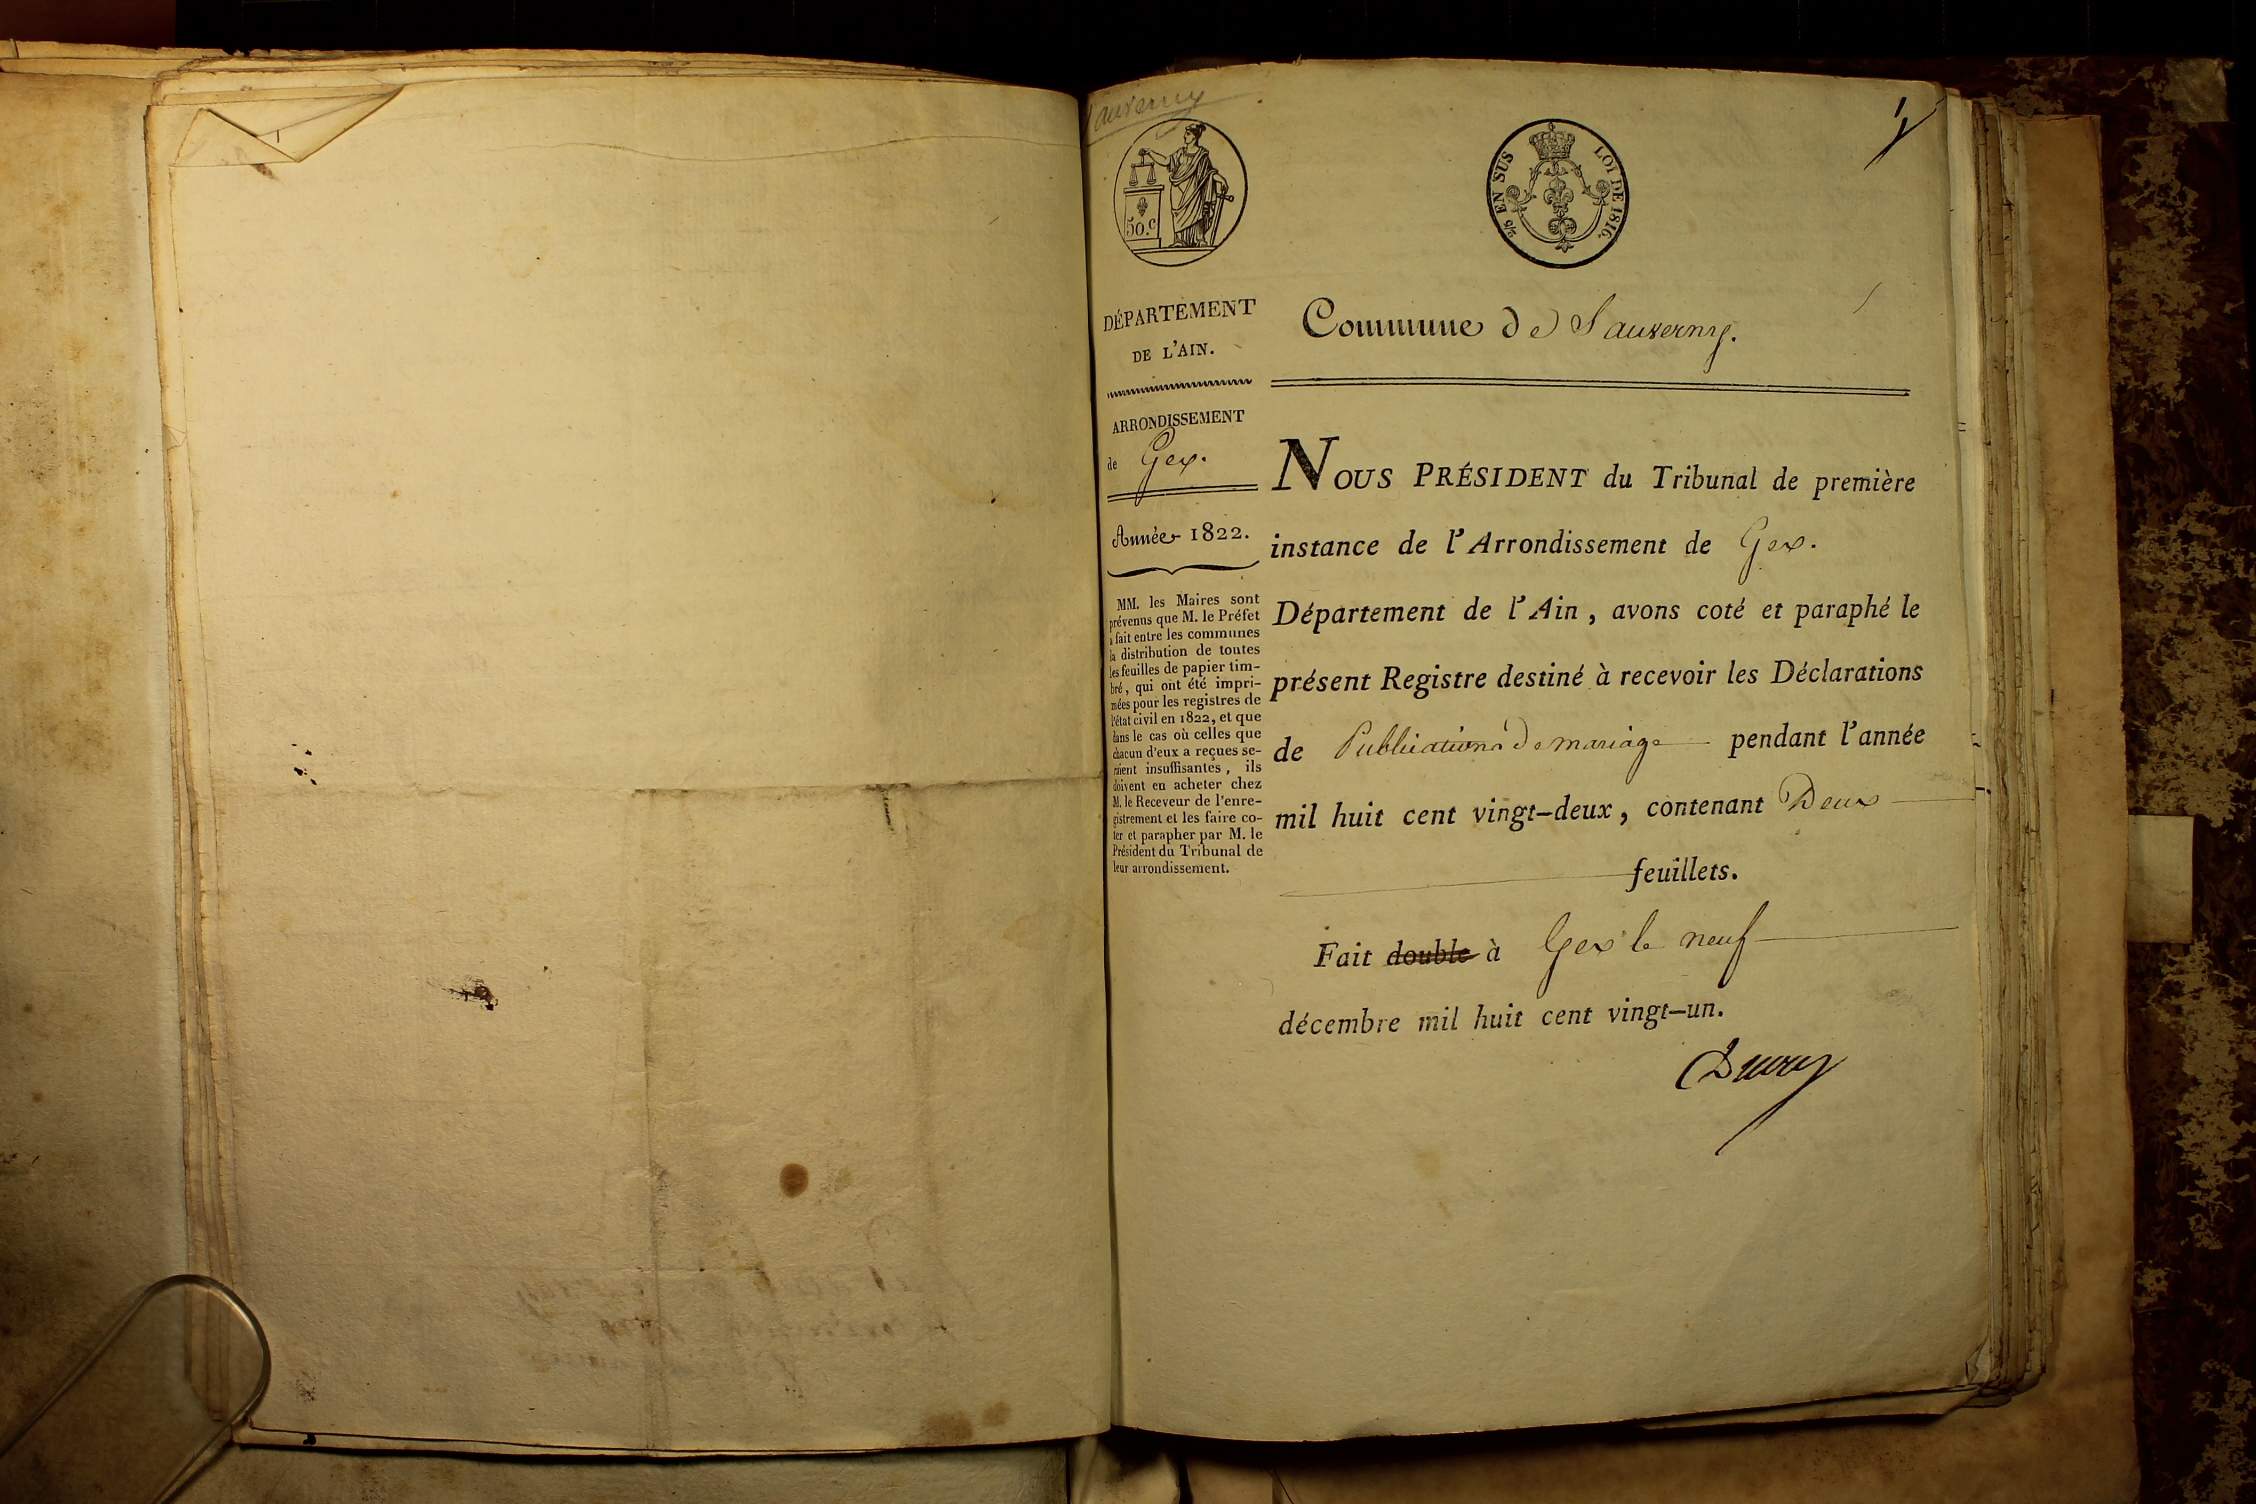 Sauverny
50.c
2/5 EN SUS LOI DE 1816.
1
DÉPARTEMENT
DE L'AIN.
ARRONDISSEMENT
de Gex.
Année 1822.
MM. les Maires sont
prévenus que M. le Préfet
a fait entre les communes
la distribution de toutes
les feuilles de papier tim-
bré, qui ont été impri-
mées pour les registres de
l'état civil en 1822, et que
dans le cas où celles que
chacun d'eux a reçues se-
raient insuffisantes, ils
doivent en acheter chez
M. le Receveur de l'enre-
gistrement et les faire co-
ter et parapher par M. le
Président du Tribunal de
leur arrondissement.
Commune de Sauverny.
NOUS PRÉSIDENT du Tribunal de première
instance de l'Arrondissement de Gex.
Département de l'Ain, avons coté et paraphé le
présent Registre destiné à recevoir les Déclarations
de Publications de mariage pendant l'année
mil huit cent vingt-deux, contenant Deux
feuillets.
Fait double à Gex le neuf
décembre mil huit cent vingt-un.